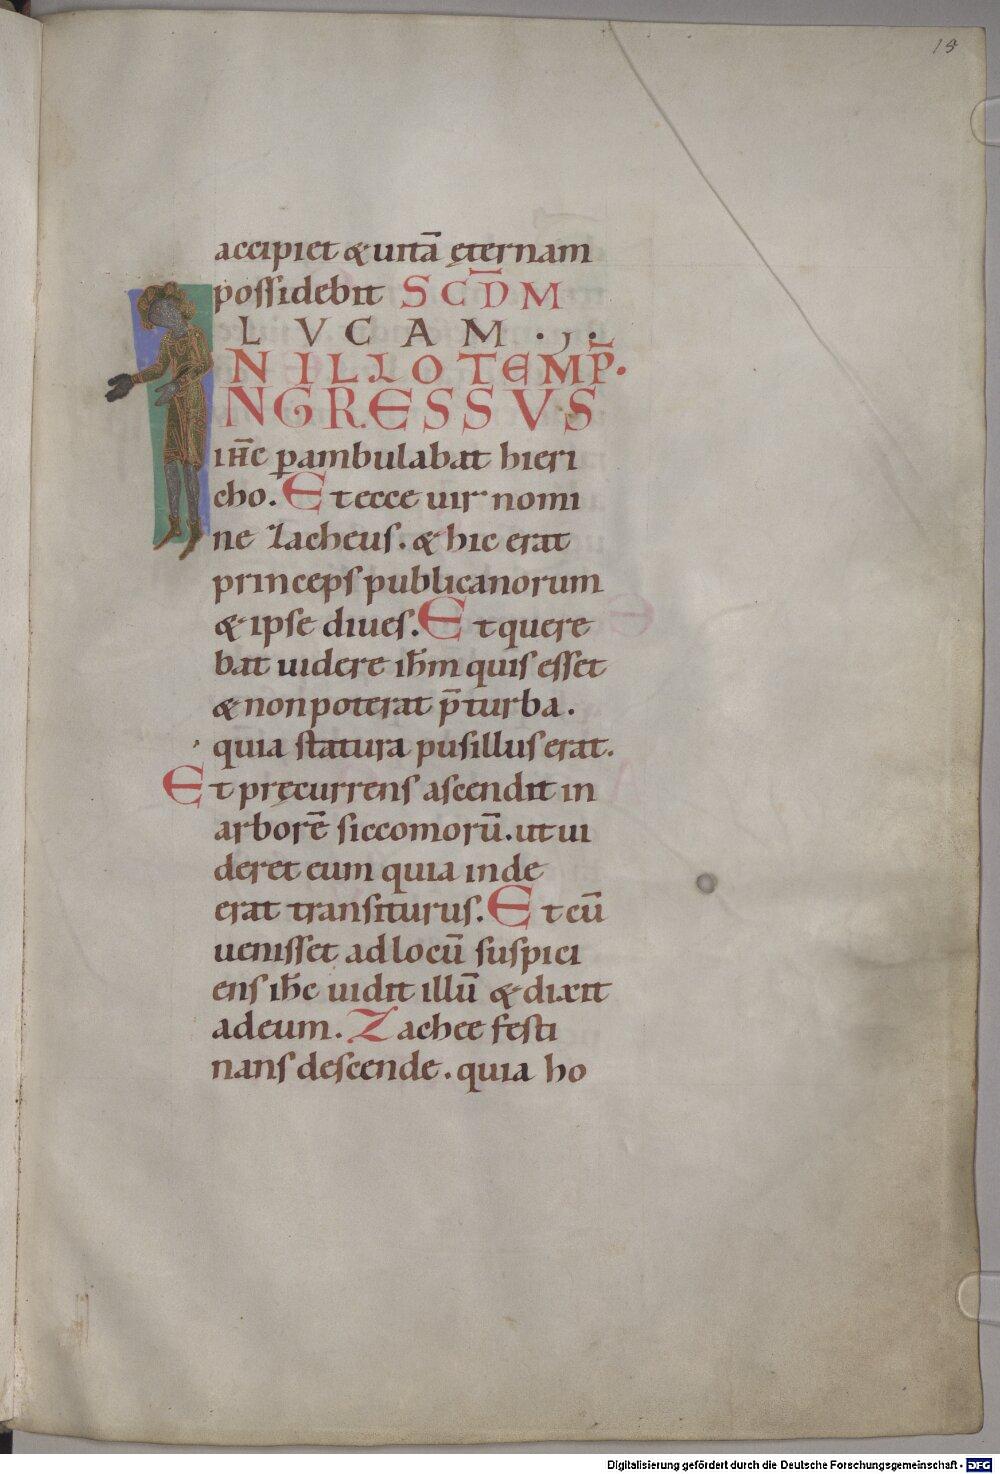 15
accipiet & uitā ęternam
possidebit SCD̄M
LVCAM · , .
NILLO TEMP̄R·
NGRESSVS
ih̄c p̱ambulabat hieri
cho. Et ecce uir nomi
ne Zacheus. & hic erat
princeps publicanorum
& ipse diues. Et quere
bat uidere ih̄m quis esset
& non poterat p̄ turba.
quia statura pusillus erat.
Et pręcurrens ascendit in
arborē siccomorū. ut ui
deret eum quia inde
erat transiturus. Et cū
uenisset ad locū suspici
ens ih̄c uidit illū & dixit
ad eum. Zachee festi
nans descende. quia ho
Digitalisierung gefördert durch die Deutsche Forschungsgemeinschaft - DFG